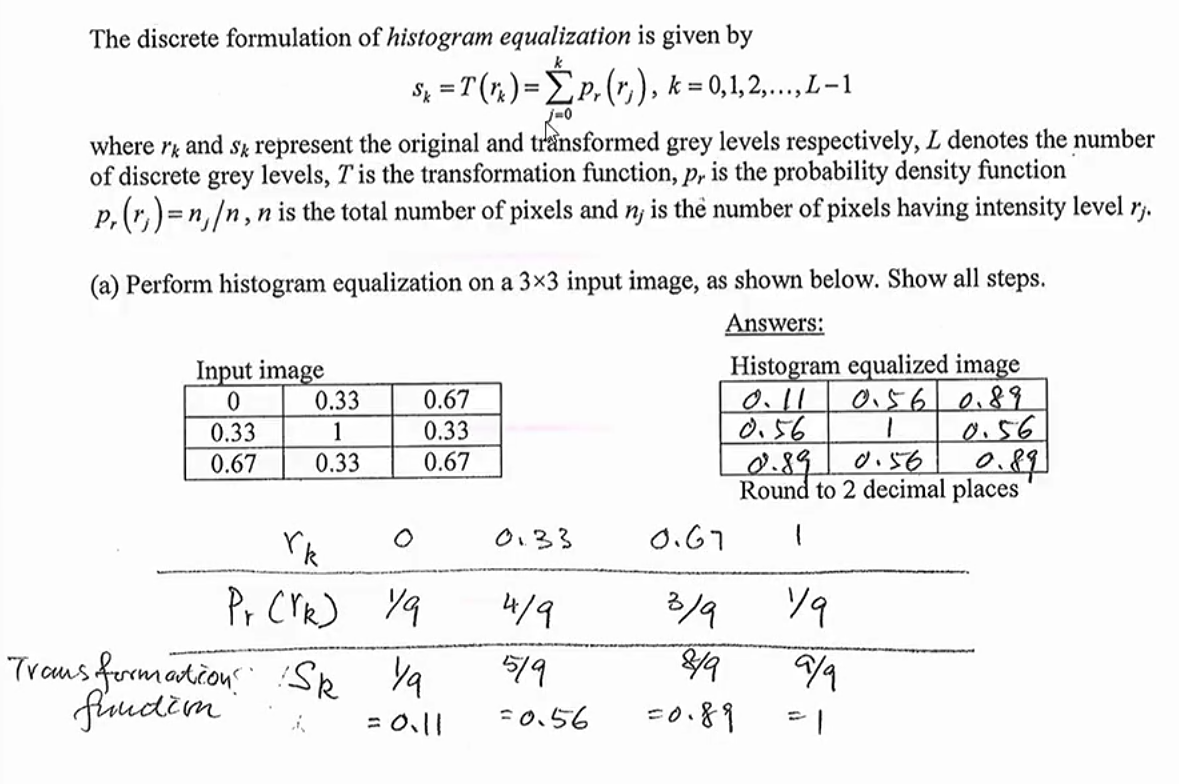 The discrete formulation of histogram equalization is given by
s_k = T(r_k) = ∑_{j=0}^{k} p_r(r_j), k = 0,1,2,...,L−1
where r_k and s_k represent the original and transformed grey levels respectively, L denotes the number
of discrete grey levels, T is the transformation function, p_r is the probability density function
p_r(r_j) = n_j/n, n is the total number of pixels and n_j is the number of pixels having intensity level r_j.
(a) Perform histogram equalization on a 3×3 input image, as shown below. Show all steps.
Answers:
Input image
0 0.33 0.67
0.33 1 0.33
0.67 0.33 0.67
Histogram equalized image
0.11 0.56 0.89
0.56 1 0.56
0.89 0.56 0.89
Round to 2 decimal places
r_k 0 0.33 0.67 1
P_r(r_k) 1/9 4/9 3/9 1/9
Transformation: S_k 1/9 5/9 8/9 9/9
function = 0.11 = 0.56 = 0.89 = 1